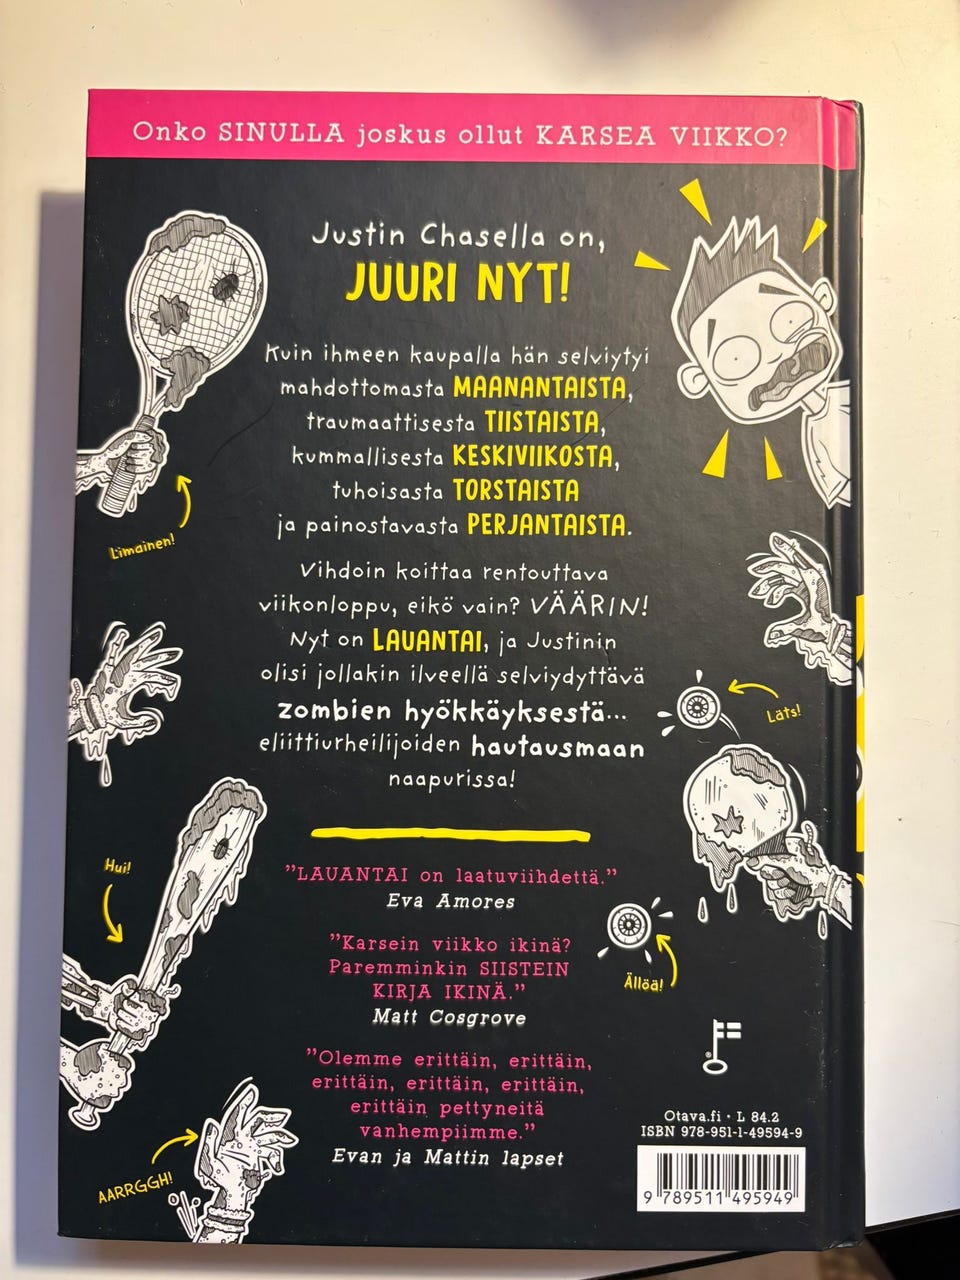 Onko SINULLA joskus ollut KARSEA VIIKKO?
Justin Chasella on,
JUURI NYT!
Kuin ihmeen kaupalla hän selviytyi
mahdottomasta MAANANTAISTA,
traumaattisesta TIISTAISTA,
kummallisesta KESKIVIIKOSTA,
tuhoisasta TORSTAISTA
ja painostavasta PERJANTAISTA.
Limainen!
Vihdoin koittaa rentouttava
viikonloppu, eikö vain? VÄÄRIN!
Nyt on LAUANTAI, ja Justinin
olisi jollakin ilveellä selviydyttävä
zombien hyökkäyksestä...
eliittiurheilijoiden hautausmaan
naapurissa!
Läts!
Hui!
"LAUANTAI on laatuviihdettä."
Eva Amores
"Karsein viikko ikinä?
Paremminkin SIISTEIN
KIRJA IKINÄ."
Matt Cosgrove
Ällöä!
"Olemme erittäin, erittäin,
erittäin, erittäin, erittäin,
erittäin pettyneitä
vanhempiimme."
Evan ja Mattin lapset
AARRGGH!
Otava.fi · L 84.2
ISBN 978-951-1-49594-9
9 789511 495949